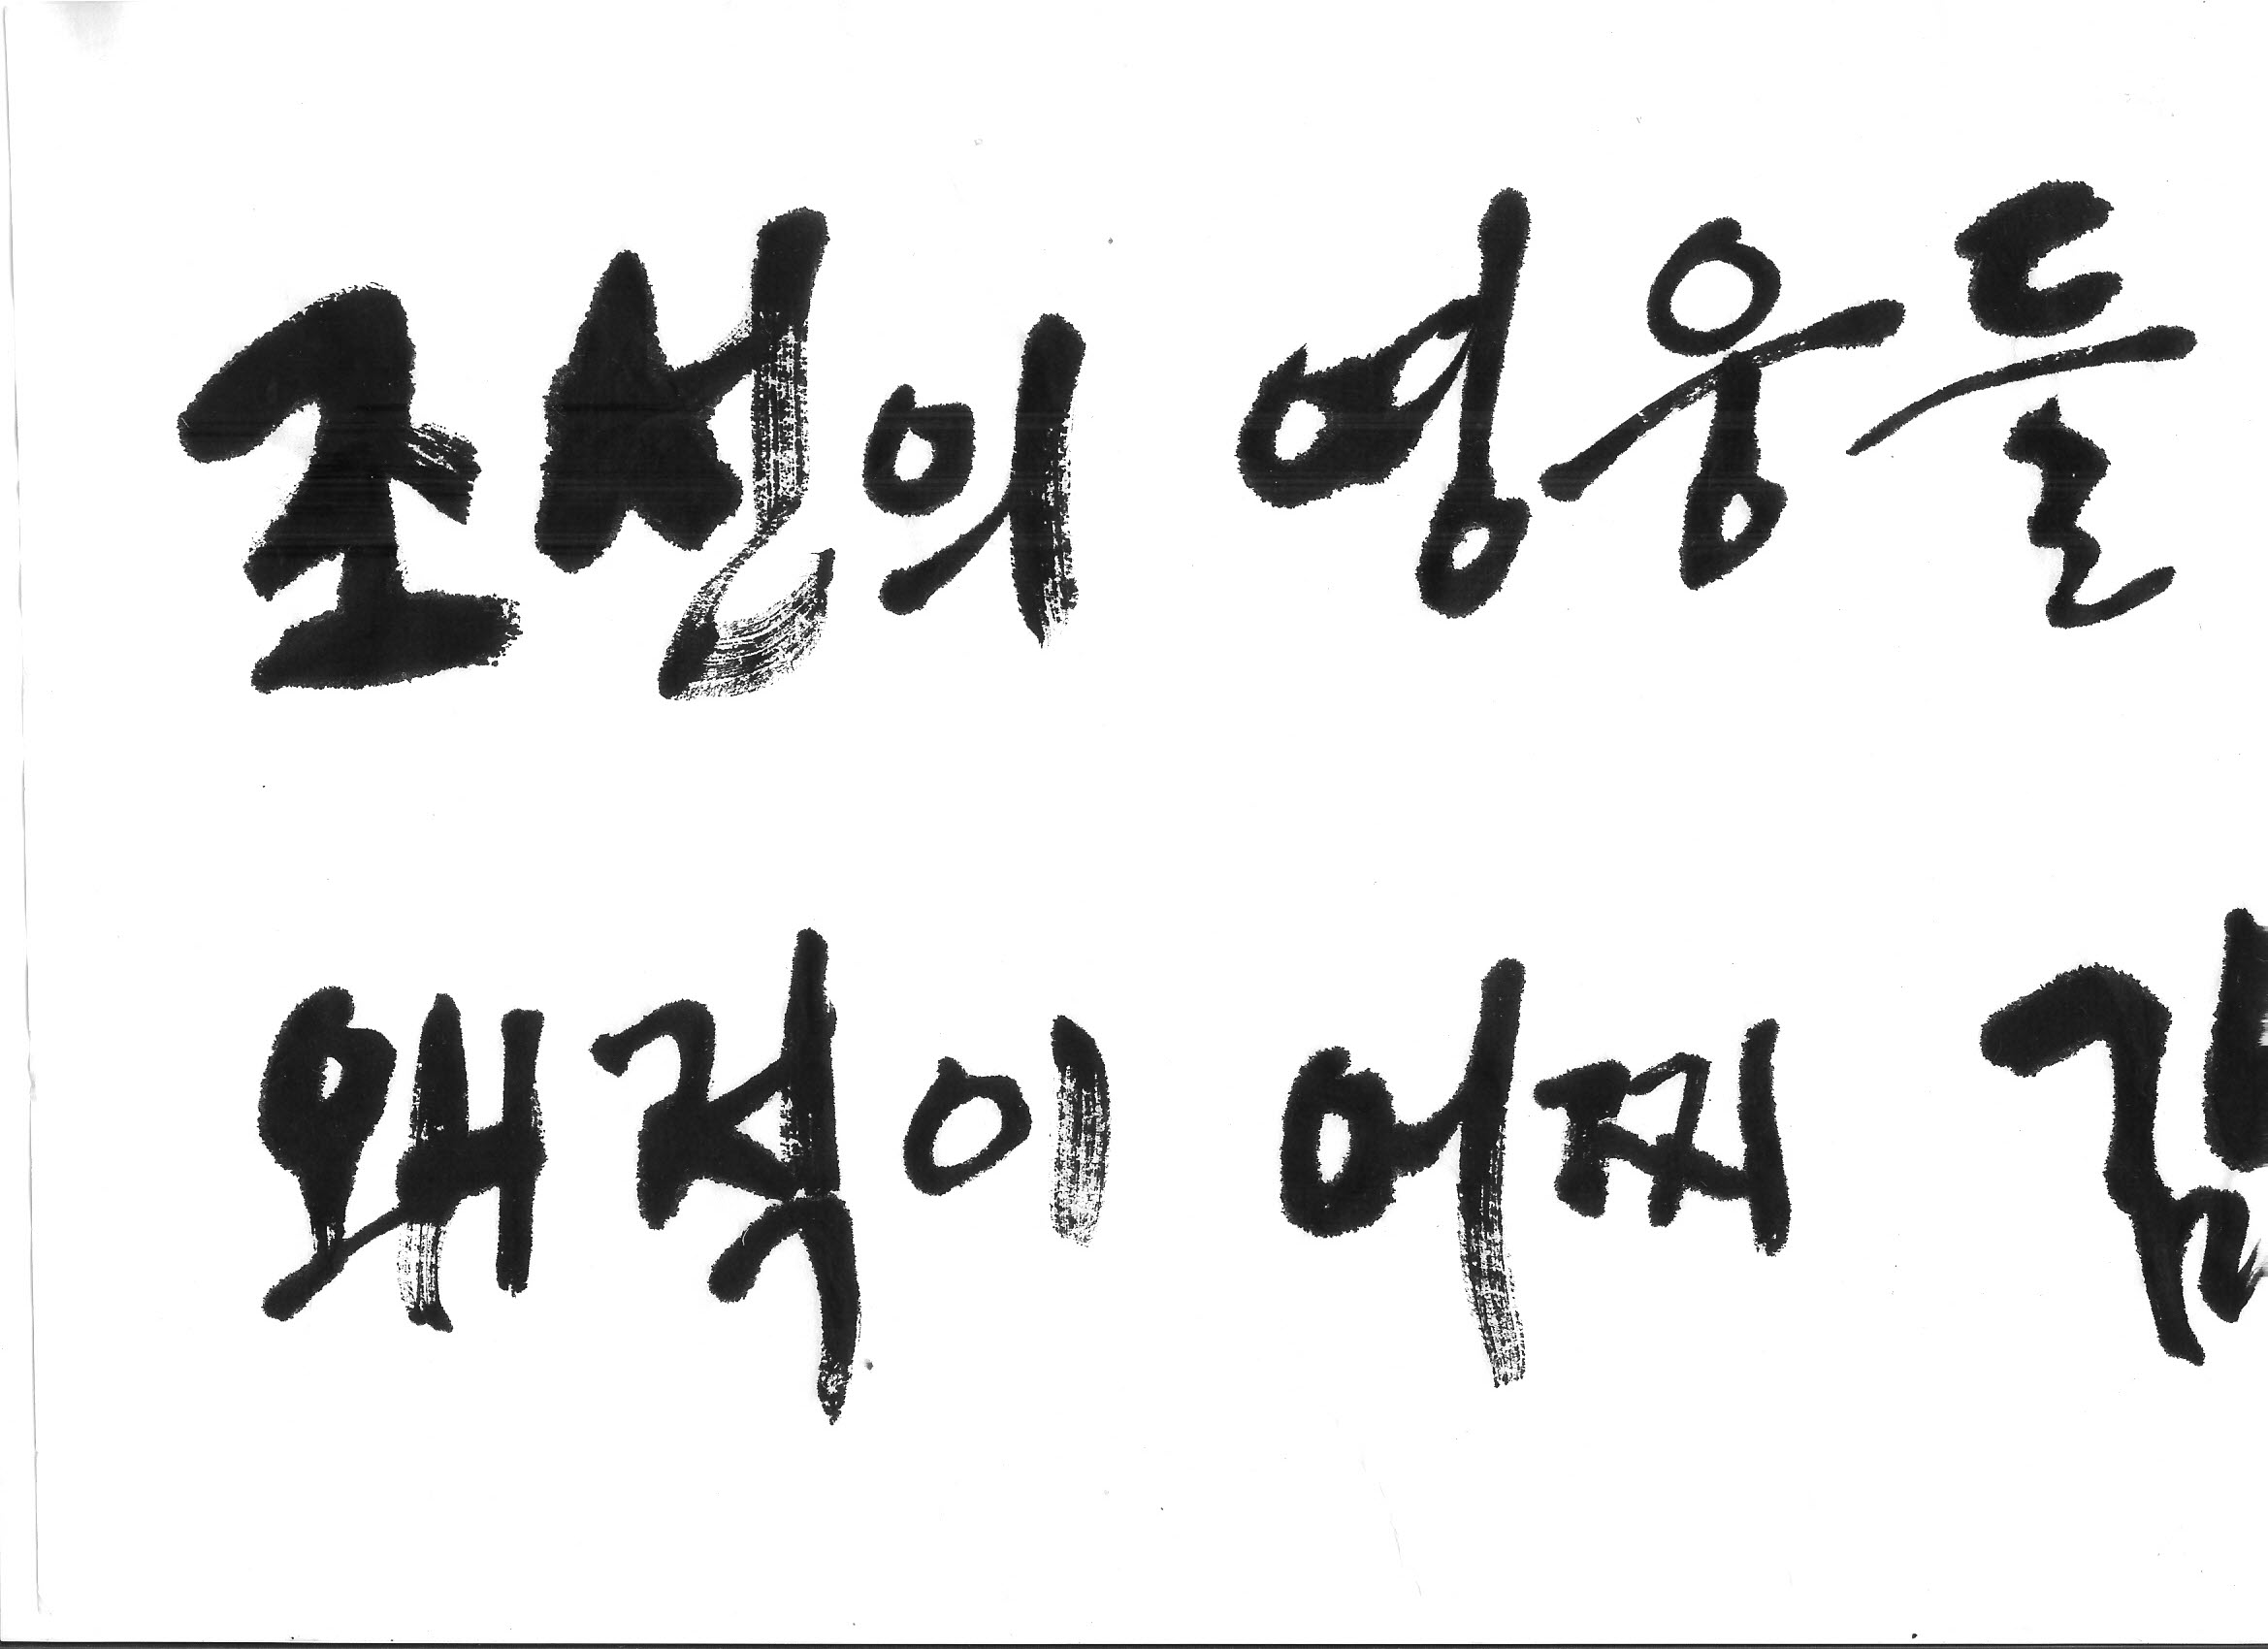 조선의 영웅들
왜적이 어찌